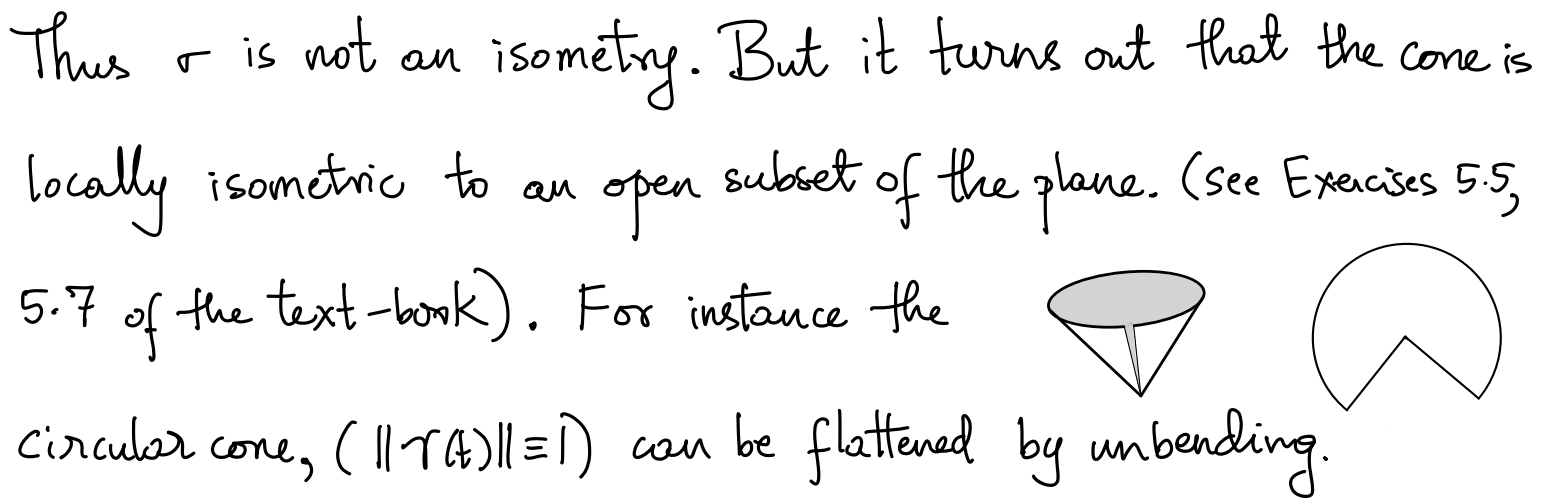 Thus σ is not an isometry. But it turns out that the cone is
locally isometric to an open subset of the plane. (see Exercises 5.5,
5.7 of the text-book). For instance the
circular cone, (||γ(t)|| ≡ 1) can be flattened by unbending.